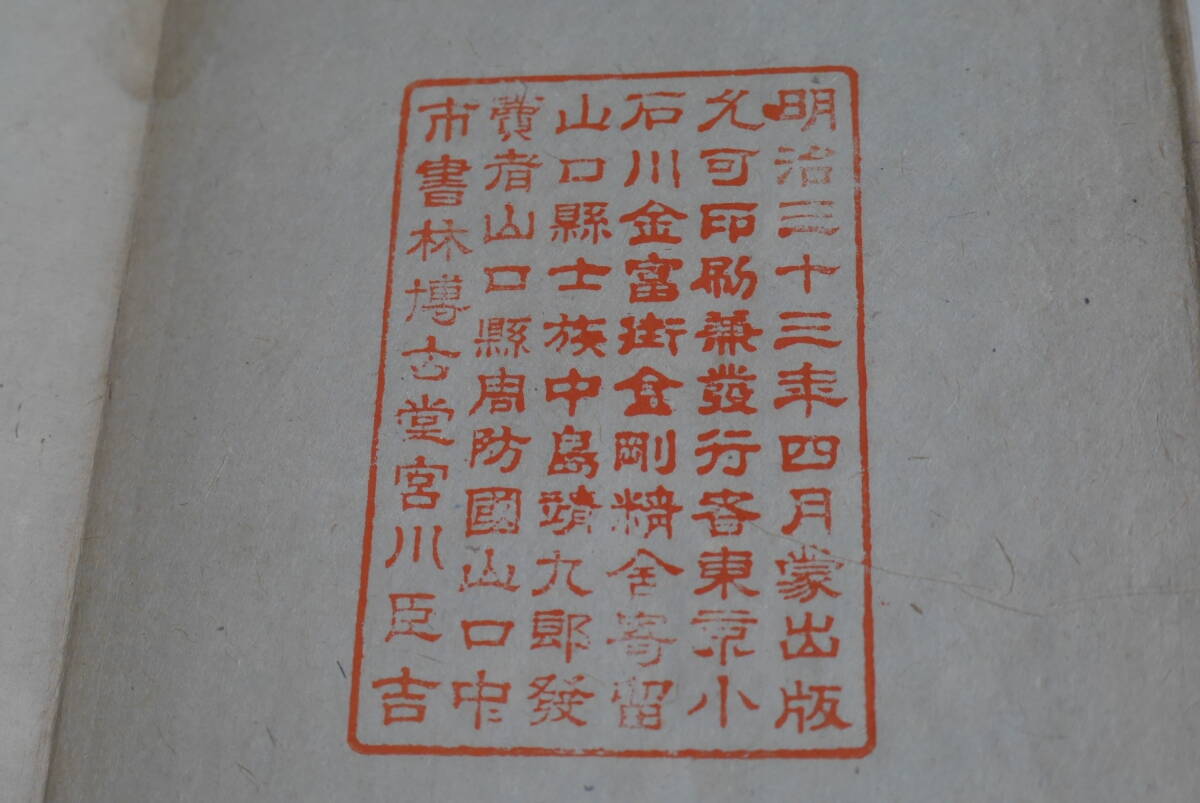 明治三十三年四月蒙出版
允可印刷兼發行者東京小
石川金富街金剛精舍寄留
山口縣士族中島靖九郎發
賣者山口縣周防國山口中
市書林博古堂宮川臣吉